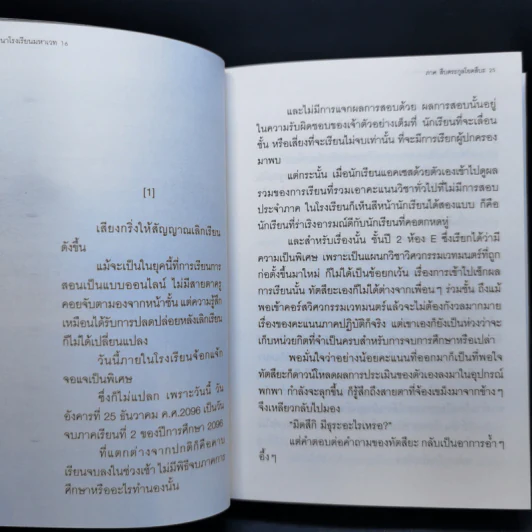 นาโรงเรียนมหาเวท 14
[1]
เสียงกริ่งให้สัญญาณเลิกเรียน
ดังขึ้น
แม้จะเป็นในยุคนี้ที่การเรียนการ
สอนเป็นแบบออนไลน์ ไม่มีสายตาครู
คอยจับตามองจากหน้าชั้น แต่ความรู้สึก
เหมือนได้รับการปลดปล่อยหลังเลิกเรียน
ก็ไม่ได้เปลี่ยนแปลง
วันนี้ภายในโรงเรียนจ้อกแจ้ก
จอแจเป็นพิเศษ
ซึ่งก็ไม่แปลก เพราะวันนี้ วัน
อังคารที่ 25 ธันวาคม ค.ศ.2096 เป็นวัน
จบภาคเรียนที่ 2 ของปีการศึกษา 2096
ที่แตกต่างจากปกติก็คือคาบ
เรียนจบลงในช่วงเช้า ไม่มีพิธีจบภาคการ
ศึกษาหรืออะไรทำนองนั้น
ภาค สืบตระกูลโยตสึบะ
และไม่มีการแจกผลการสอบด้วย ผลการสอบนั้นอยู่
ในความรับผิดชอบของเจ้าตัวอย่างเต็มที่ นักเรียนที่จะเลื่อน
ชั้น หรือเสี่ยงที่จะเรียนไม่จบเท่านั้น ที่จะมีการเรียกผู้ปกครอง
มาพบ
แต่กระนั้น เมื่อนักเรียนแอคเซสด้วยตัวเองเข้าไปดูผล
รวมของการเรียนที่รวมเอาคะแนนวิชาทั่วไปที่ไม่มีการสอบ
ประจำภาค ในโรงเรียนก็เห็นสีหน้านักเรียนได้สองแบบ ก็คือ
นักเรียนที่ร่าเริงอารมณ์ดีกับนักเรียนที่คอตกหดหู่
และสำหรับเรื่องนั้น ชั้นปี 2 ห้อง E ซึ่งเรียกได้ว่ามี
ความเป็นพิเศษ เพราะเป็นแผนกวิชาวิศวกรรมเวทมนตร์ที่ถูก
ก่อตั้งขึ้นมาใหม่ ก็ไม่ได้เป็นข้อยกเว้น เรื่องการเข้าไปเช็กผล
การเรียนนั้น ทัตสึยะเองก็ไม่ได้ต่างจากเพื่อนๆ ร่วมชั้น ถึงแม้
พอเข้าคอร์สวิศวกรรมเวทมนตร์แล้วจะไม่ต้องกังวลมากมาย
เรื่องของคะแนนภาคปฏิบัติก็จริง แต่เขาเองก็ยังเป็นห่วงว่าจะ
เก็บหน่วยกิตที่จำเป็นครบสำหรับการจบการศึกษาหรือเปล่า
พอมั่นใจว่าอย่างน้อยคะแนนที่ออกมาก็เป็นที่พอใจ
ทัตสึยะก็ดาวน์โหลดผลการประเมินของตัวเองลงมาในอุปกรณ์
พกพา กำลังจะลุกขึ้น ก็รู้สึกถึงสายตาที่จ้องเขม็งมาจากข้างๆ
จึงเหลียวกลับไปมอง
"มิตสึกิ มีธุระอะไรเหรอ?"
แต่คำตอบต่อคำถามของทัตสึยะ กลับเป็นอาการอ้ำๆ
อึ้งๆ